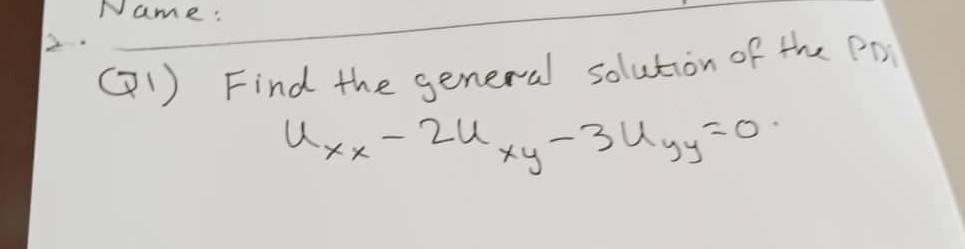 Name:
2.
Q1) Find the general solution of the PD
Uxx - 2Uxy - 3Uyy = 0.